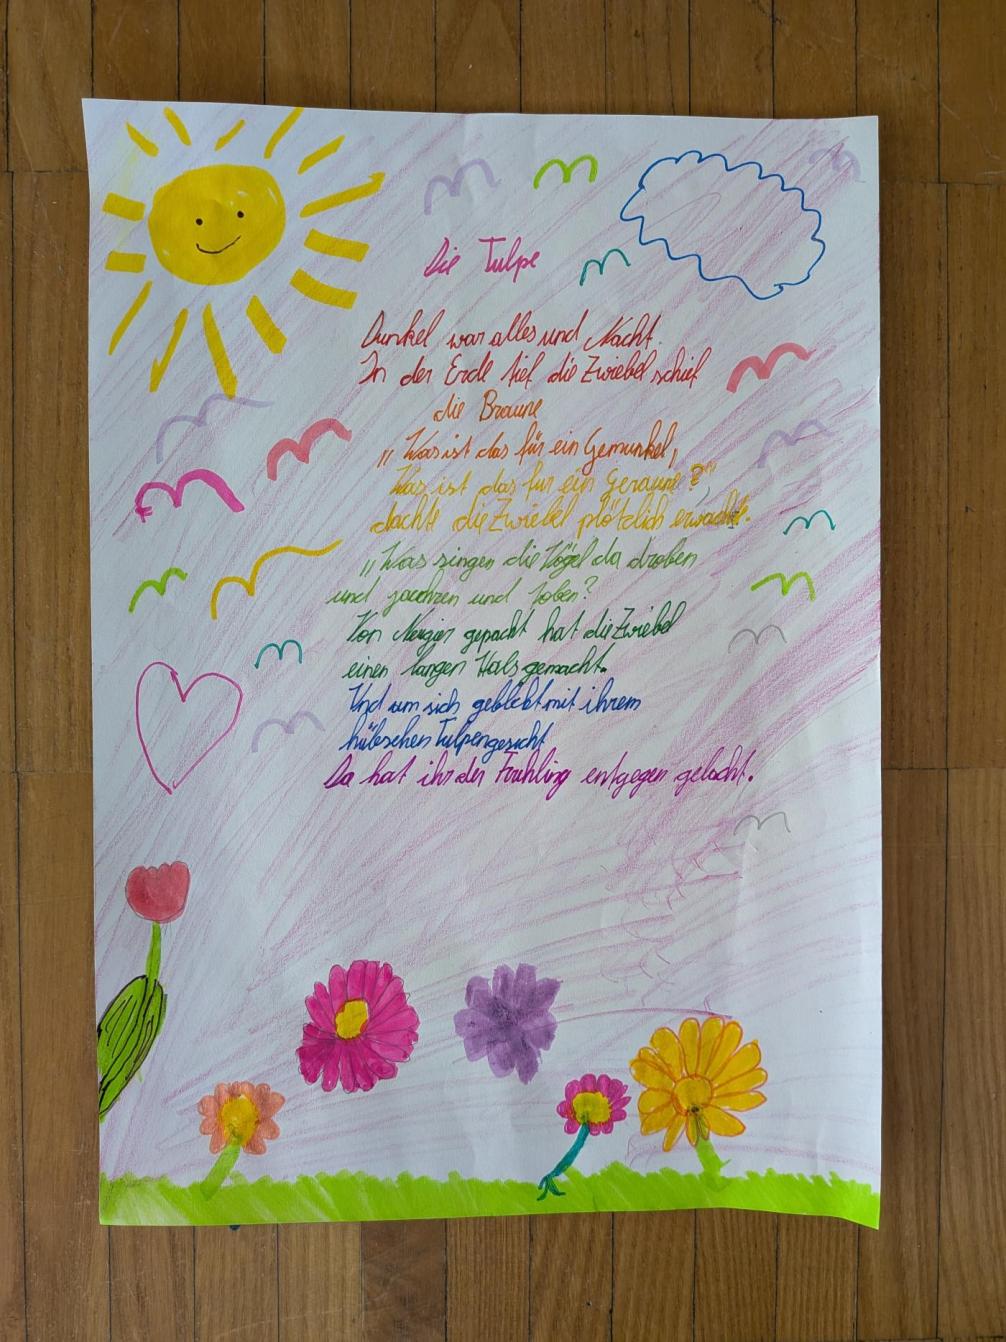 Die Tulpe
Dunkel war alles und Nacht.
In der Erde tief die Zwiebel schief
die Braune
„Was ist das für ein Gemunkel,
Was ist das für ein Geraune?"
dachte die Zwiebel plötzlich erwacht.
„Was singen die Vögel da droben
und jauchzen und toben?
Von Neugier gepackt hat die Zwiebel
einen langen Hals gemacht.
Und um sich geblickt mit ihrem
hübschen Tulpengesicht
Da hat ihr der Frühling entgegen gelacht.